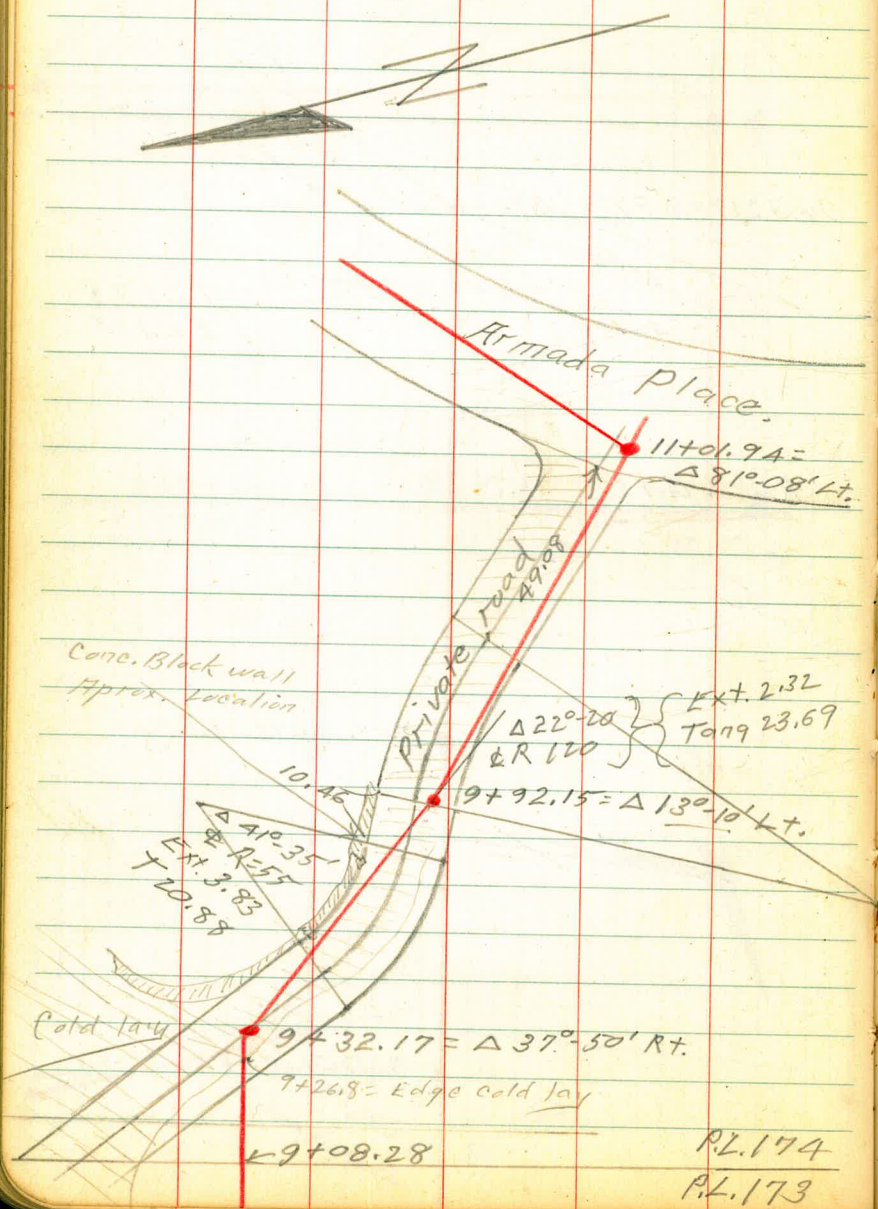 Armada Place.
11+01.94=
Δ 81°-08' Lt.
Private road
49.08
Conc. Block wall
Aprox. Location
Δ 22°-20
℄ R 120
Ext. 2.32
Tang 23.69
10.46
9+92.15 = Δ 13°-10' Lt.
Δ 41°-35'
℄ R=55
Ext. 3.83
T 20.88
Cold lay
9+32.17 = Δ 37°-50' Rt.
9+26.8 = Edge cold lay
9+08.28
P.L.174
P.L.173